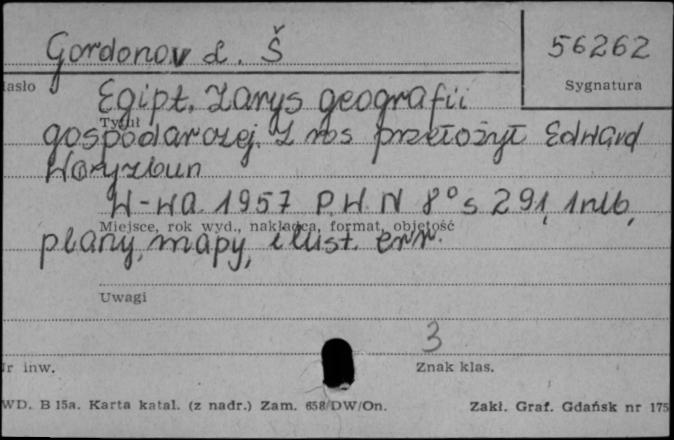 Gordonov L. Š
56262
Sygnatura
asło
Egipt. Zarys geografii
Tytuł
gospodarczej. Z ros przełożył Edward
W-wa 1957 P.W.N 8° s 291, 1 nlb,
Miejsce, rok wyd., nakładca, format, objętość
plany, mapy, ilust. err.
Uwagi
3
r inw.
Znak klas.
WD. B 15a. Karta katal. (z nadr.) Zam. 658/DW/On.
Zakł. Graf. Gdańsk nr 175